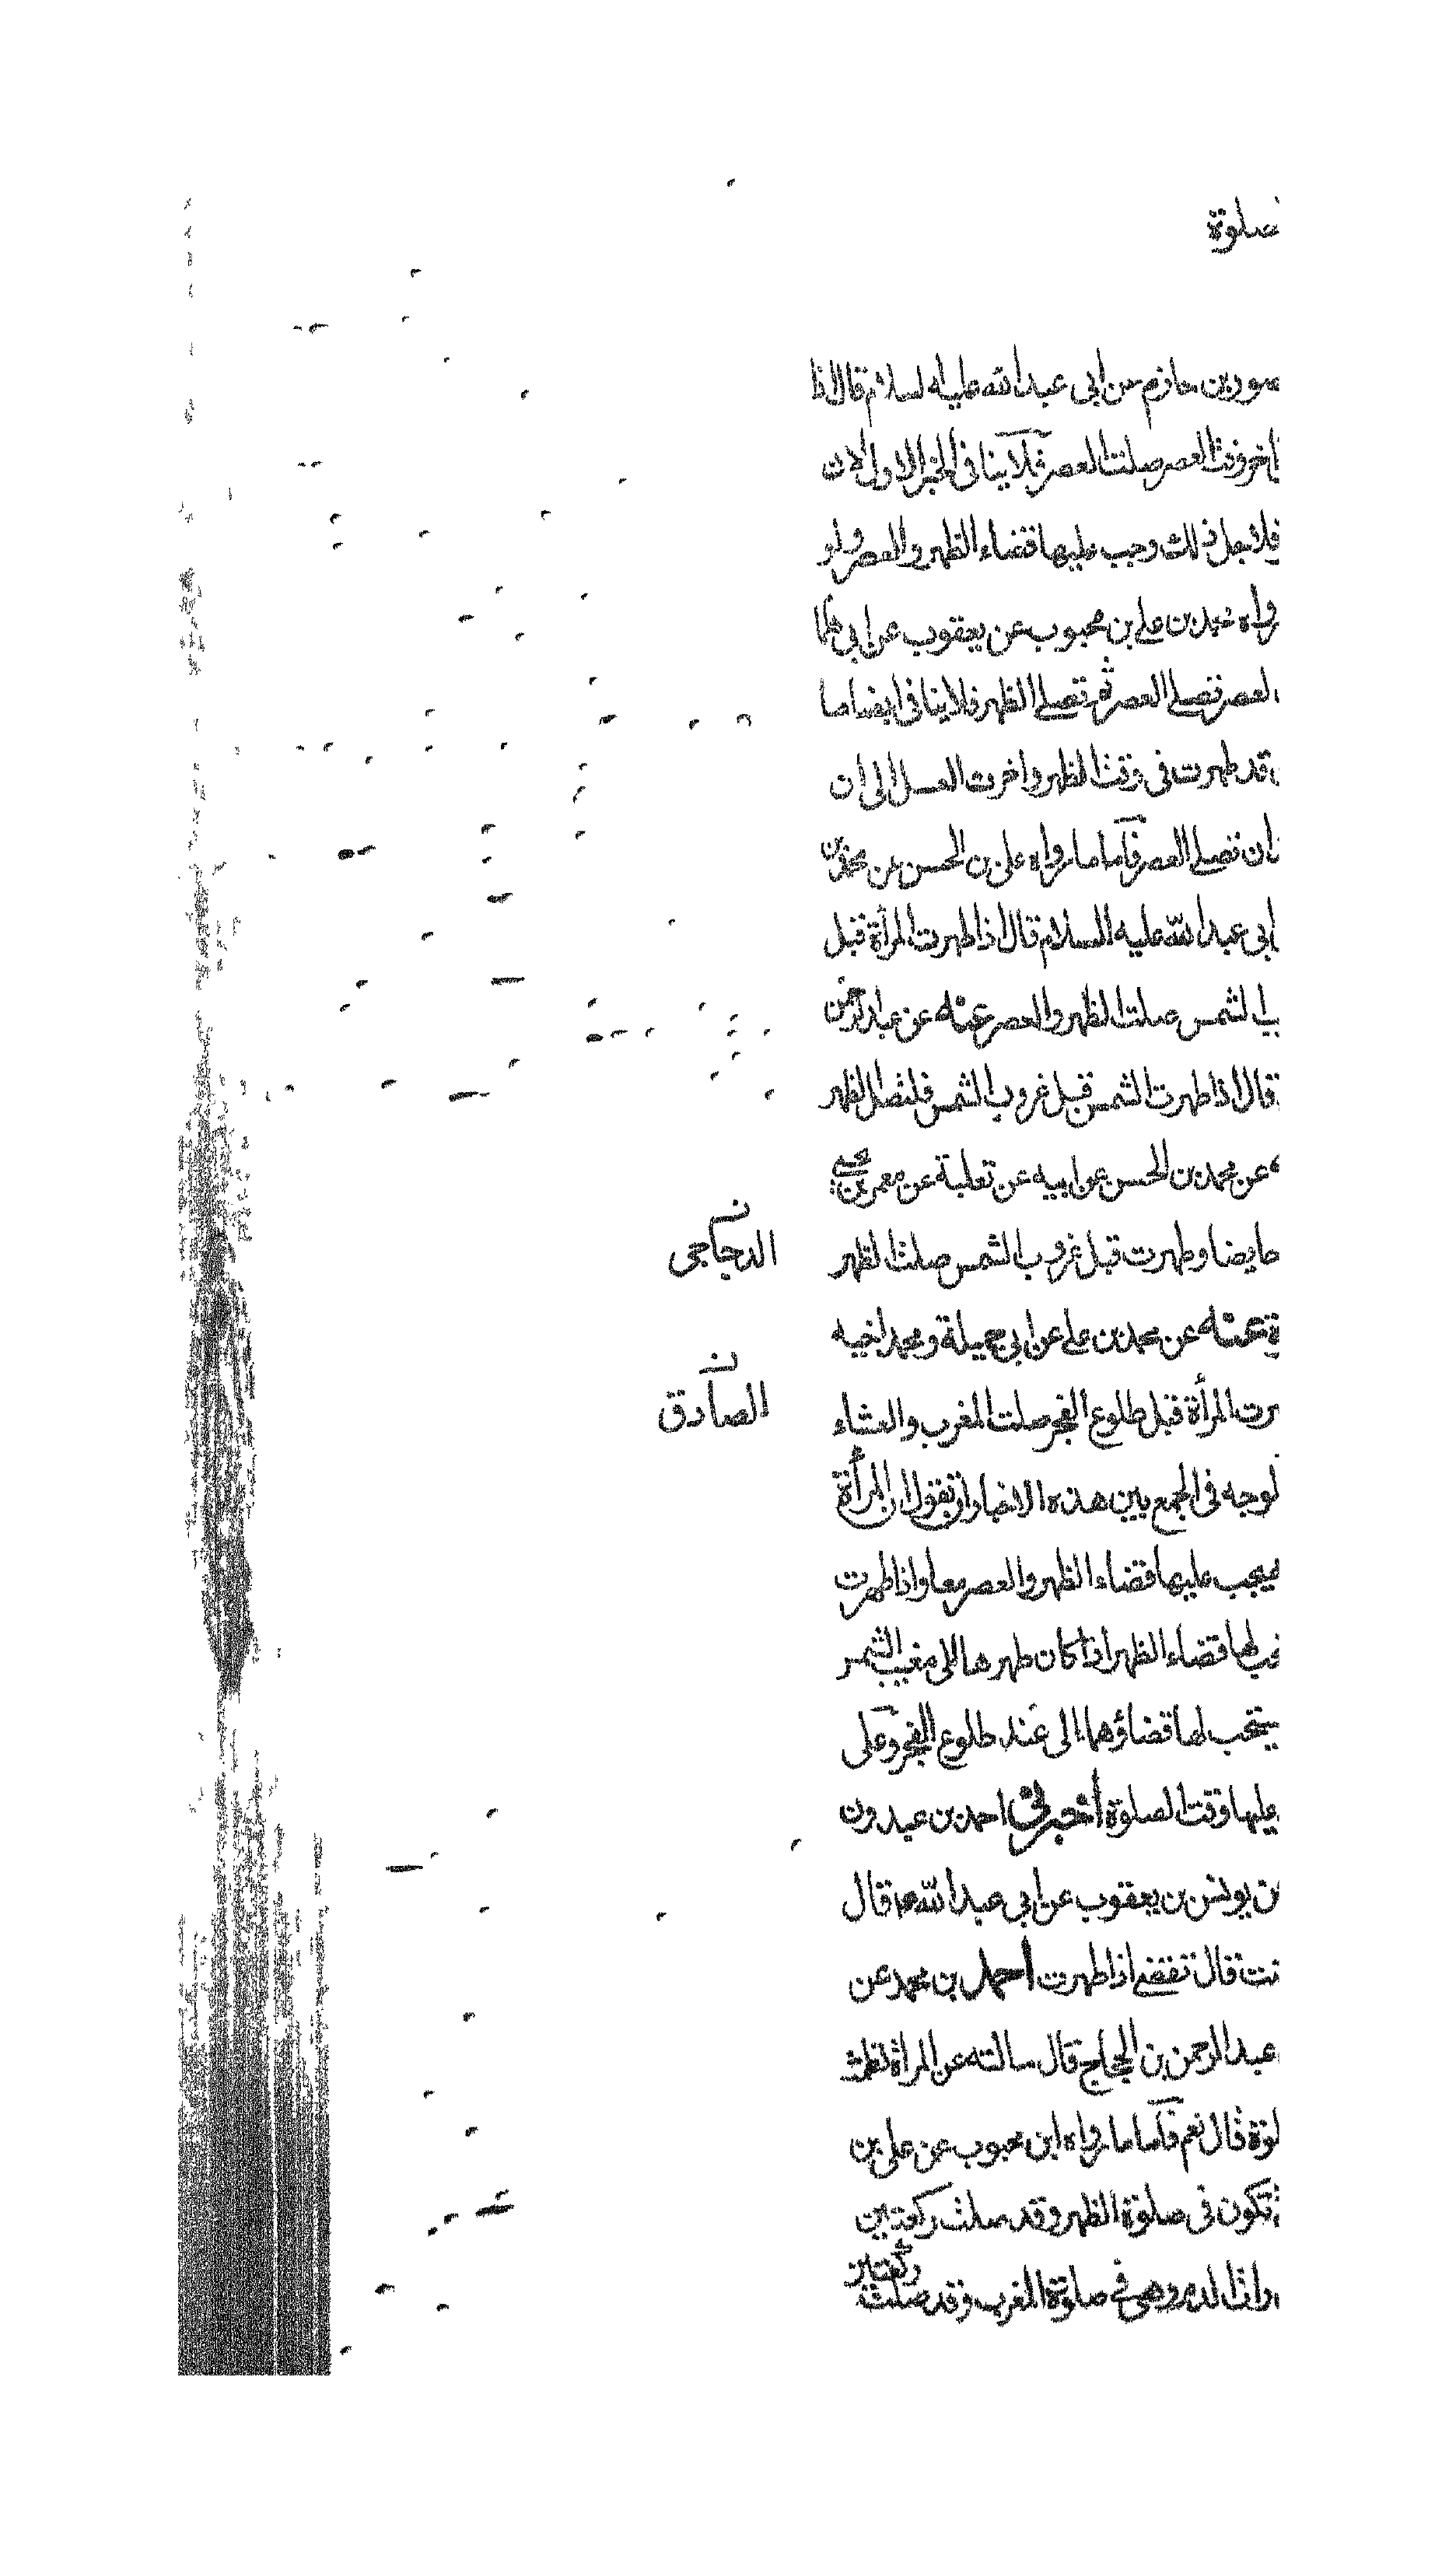 صلوة
بن حازم عن ابى عبد الله عليه لسلام قال اذا
اخر وقت العصر صلت العصر فلا ينافى الخبر الاول لان
فلاجل ذلك وجب عليها قضاء الظهر والعصر ولو
رواه محمد بن على بن محبوب عن يعقوب عن ابى همام
العصر تصلى العصر ثم تصلى الظهر فلا ينافى ايضا ما
قد طهرت فى وقت الظهر واخرت الغسل الى ان
ان تصلى العصر فاما ما رواه على بن الحسن عن محمد بن
ابى عبد الله عليه السلام قال اذا طهرت المرأة قبل
الشمس صلت الظهر والعصر عنه عن عبد الرحمن
قال اذا طهرت الشمس قبل غروب الشمس فلتصل الظهر
عن محمد بن الحسن عن ابيه عن ثعلبة عن معمر بن يحيى
حايضا وطهرت قبل غروب الشمس صلت الظهر
الدجاجى ن
عنه عن محمد بن على عن ابى جميلة ومحمد اخيه
المرأة قبل طلوع الفجر صلت المغرب والعشاء
الصادق ن
لوجه فى الجمع بين هذه الاخبار ان نقول ان المرأة
يجب عليها قضاء الظهر والعصر معا واذا طهرت
لها قضاء الظهر اذا كان طهرها الى مغيب الشمس
يستحب لها قضاؤهما الى عند طلوع الفجر وعلى
عليها وقت الصلوة أخبرنى احمد بن عبدون
عن يونس بن يعقوب عن ابى عبد الله ع قال
قال تقضى اذا طهرت أحمد بن محمد عن
عبد الرحمن بن الحجاج قال سالته عن المرأة تطمث
قال نعم فاما ما رواه ابن محبوب عن على بن
تكون فى صلوة الظهر وقد صلت ركعتين
رات الدم وهى فى صلوة المغرب وقد صلت ركعتين